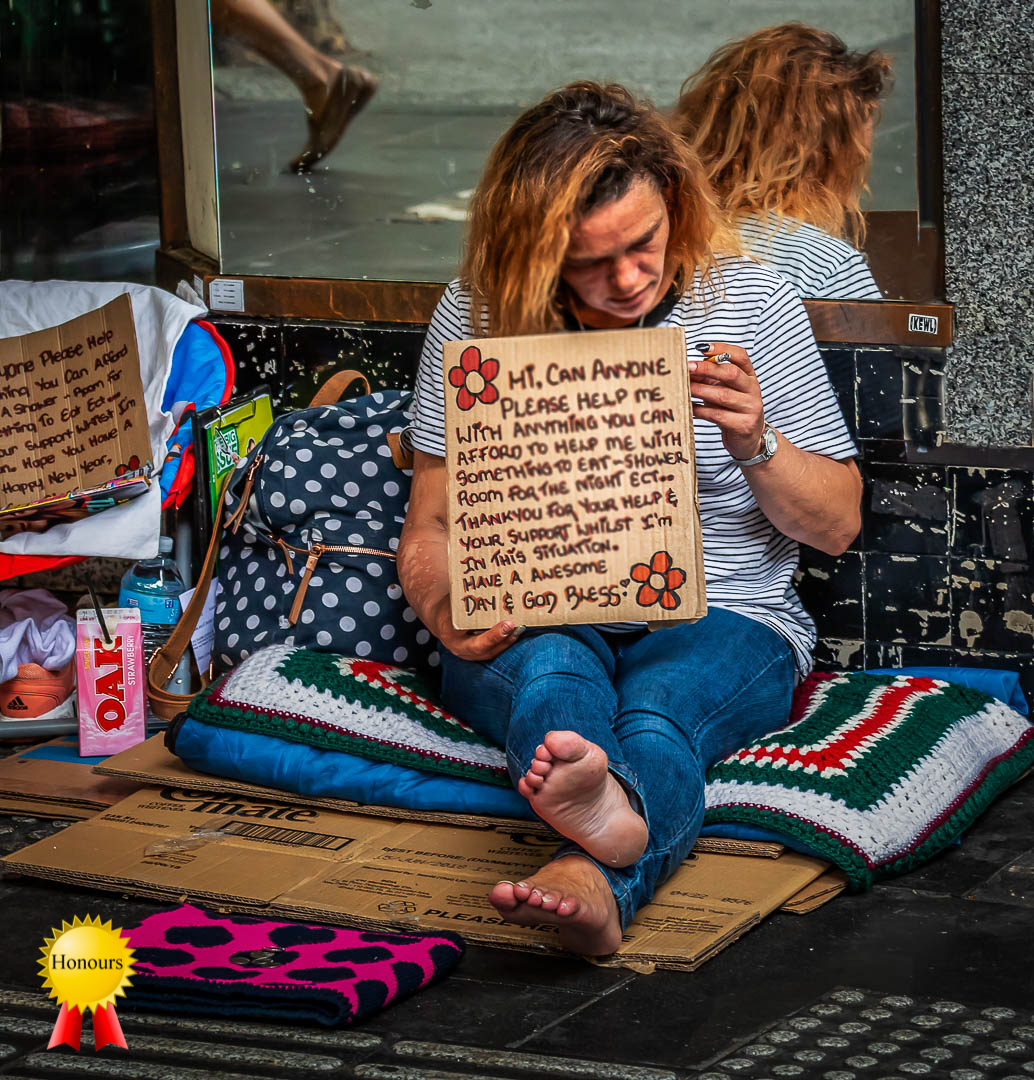 HI, CAN ANYONE
PLEASE HELP ME
WITH ANYTHING YOU CAN
AFFORD TO HELP ME WITH
SOMETHING TO EAT - SHOWER
ROOM FOR THE NIGHT ECT..
THANKYOU FOR YOUR HELP &
YOUR SUPPORT WHILST I'M
IN THIS SITUATION.
HAVE A AWESOME
DAY & GOD BLESS.
Please Help
You Can Afford
A Shower Room For
To Eat Ect....
Support Whilst I'm
Hope You Have A
Happy New Year.
(KEWL)
OAK
STRAWBERRY
adidas
mate
COFFEE
BEST BEFORE:
PLEASE
Honours